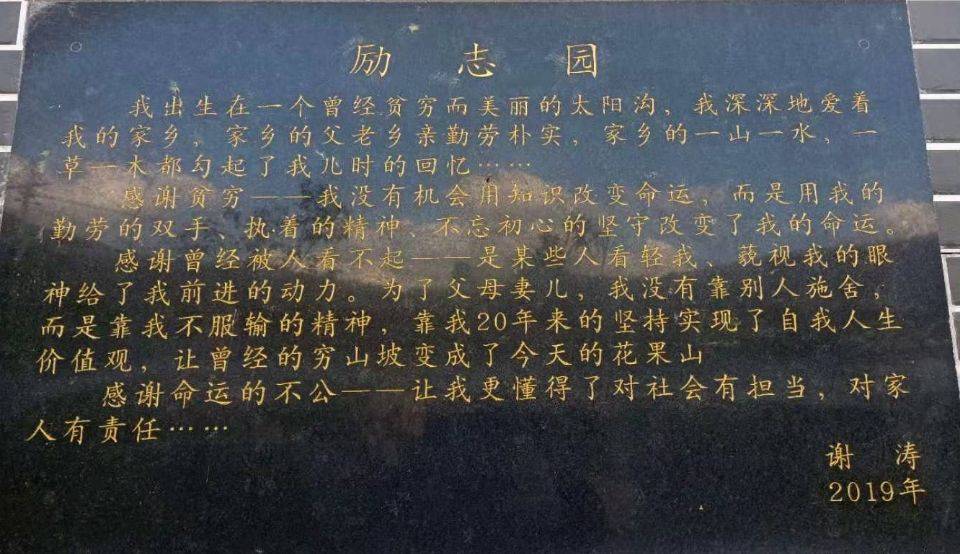 励志园
我出生在一个曾经贫穷而美丽的太阳沟，我深深地爱着
我的家乡，家乡的父老乡亲勤劳朴实，家乡的一山一水，一
草一木都勾起了我儿时的回忆……
感谢贫穷——我没有机会用知识改变命运，而是用我的
勤劳的双手、执着的精神、不忘初心的坚守改变了我的命运。
感谢曾经被人看不起——是某些人看轻我、藐视我的眼
神给了我前进的动力。为了父母妻儿，我没有靠别人施舍，
而是靠我不服输的精神，靠我20年来的坚持实现了自我人生
价值观，让曾经的穷山坡变成了今天的花果山
感谢命运的不公——让我更懂得了对社会有担当，对家
人有责任……
谢涛
2019年